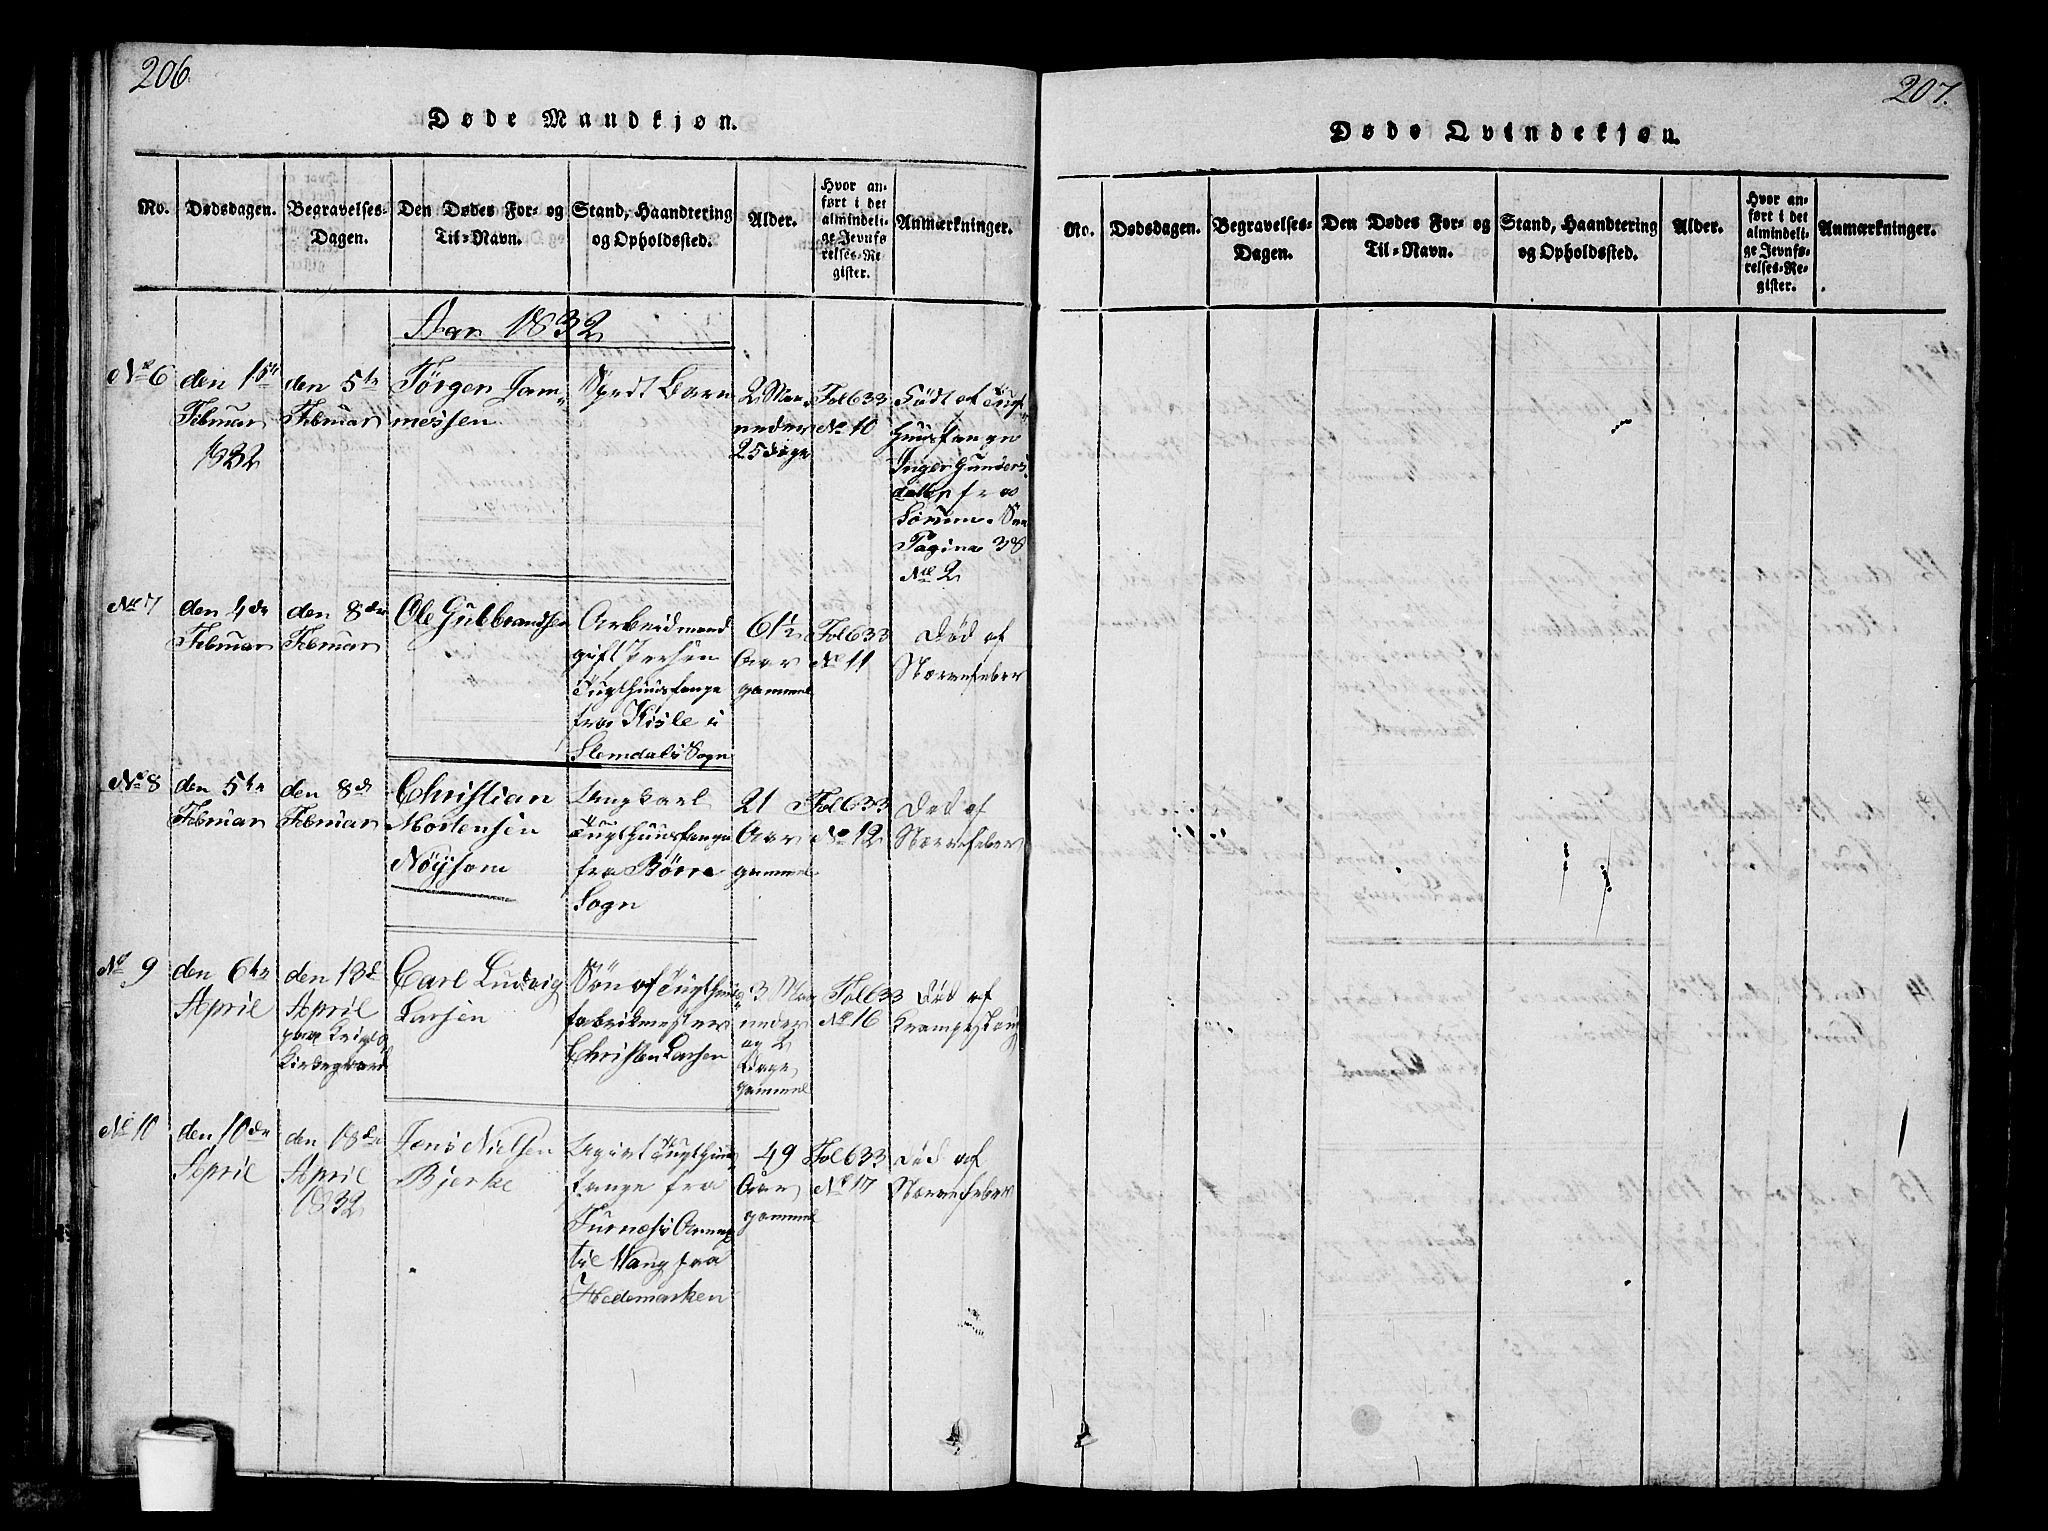 206.
Døde Mandkjøn.
No.
Dødsdagen.
Begravelses-
Dagen.
Den Dødes For- og
Til-Navn.
Stand, Haandtering
og Opholdssted.
Alder.
Hvor an-
ført i det
almindeli-
ge Jevnfø
relses-Re
gister.
Anmærkninger.
Aar 1832
No 6
den 1ste
Februar
1832
den 5te
Februar
Jørgen Jam-
messen
Spedt Barn
2 Maa-
neder
25 dage
Fol 633
No 10
Født af Tugt-
huusfange
Inger Gunders-
datter fra
Sørum. See
Pagina 38
No 2
No 7
den 4de
Februar
den 8de
Februar
Ole Gulbrandsen
Arbeidmand
gift
Tugthuusfange
fra Kisle i
Slemdals Sogn
61½
Aar
gammel
Fol 633
No 11
Død af
Nervefeber
No 8
den 5te
Februar
den 8de
Februar
Christian
Mortensen
Nøysom
Ungkarl
Tugthuusfange
fra Børre
Sogn
21
Aar
gammel
Fol 633
No 12
Død af
Nervefeber
No 9
den 6te
April
den 13de
April
paa
Kirkegaard
Carl Ludvig
Larsen
Søn af Tugthuus-
fabrikmester
Christen Larsen
3 Maa-
neder
og 2
Dage
gammel
Fol 633
No 16
Død af
Krampeslag
No 10
den 10de
April
den 18de
April
1832
Jens Nielsen
Bjerke
Ugivt Tugthuus-
fange fra
Furnæs Annex
til Vang fra
Hedemarken
49
Aar
gammel
Fol 633
No 17
Død af
Nervefeber
207.
Døde Qvindekjøn.
No.
Dødsdagen.
Begravelses-
Dagen.
Den Dødes For- og
Til-Navn.
Stand, Haandtering
og Opholdssted.
Alder.
Hvor an-
ført i det
almindeli-
ge Jevnfø-
relses-Re-
gister.
Anmærkninger.